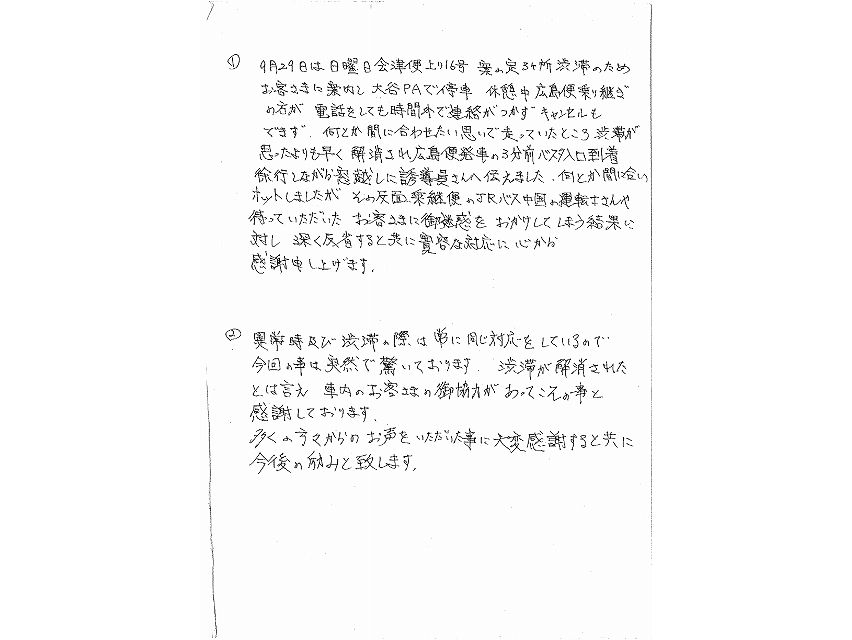 ① 9月29日は日曜日会津便上り16号 案の定3ヶ所渋滞のため
お客さまに案内し 大谷PAで停車 休憩中広島便乗り継ぎ
の方が 電話をしても時間外で連絡がつかず キャンセルも
できず、何とか間に合わせたい思いで走っていたところ 渋滞が
思ったよりも早く 解消され広島便発車の3分前バスタ入口到着
徐行しながら窓越しに誘導員さんへ伝えました、何とか間に合い
ホットしましたが その反面乗継便のJRバス中国の運転士さんや
待っていただいた お客さまに御迷惑を おかけしてしまう結果に
対し 深く反省すると共に寛容な対応に心から
感謝申し上げます.
② 異常時及び渋滞の際は常に同じ対応をしているので
今回の事は突然で驚いております. 渋滞が解消された
とは言え 車内のお客さまの御協力が あってこその事と
感謝しております.
多くの方々からの お声をいただいた事に大変感謝すると共に
今後の励みと致します.